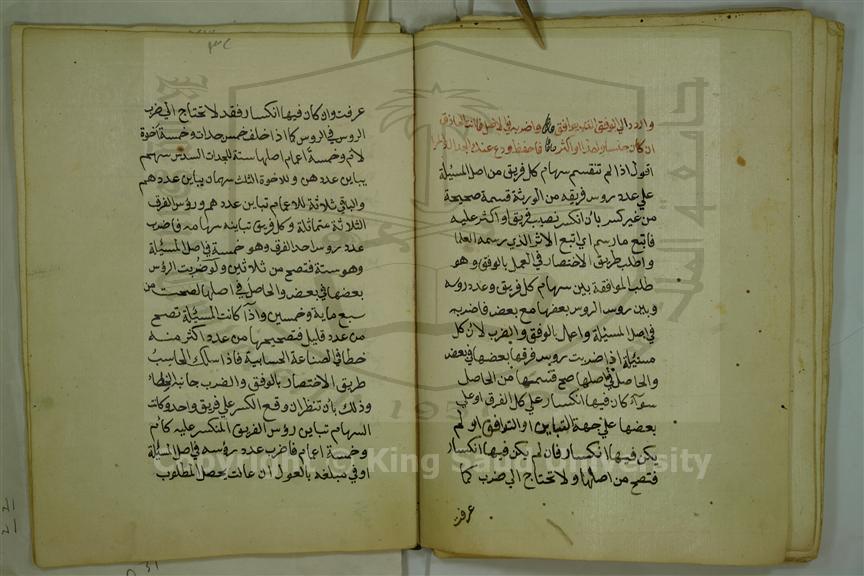 واردد الي الوفق الذي يوافق واضربه في الاصل فانت الحاذق
ان كان جنسا واحدا او اكثرا فاحفظ ودع عنك الجدال والمرا
اقول اذا لم تنقسم سهام كل فريق من اصل المسئلة
علي عدد روس فريقه من الورثة قسمة صحيحة
من غير كسر بان انكسر نصيب فريق او اكثر عليه
فاتبع ما رسم اي اتبع الاثر الذي رسمه العلما
واطلب طريق الاختصار في العمل بالوفق وهو
طلب الموافقة بين سهام كل فريق وعدد روسه
وبين روس الروس بعضها مع بعض فاضربه
في اصل المسئلة واعمل بالوفق والضرب لان كل
مسئلة اذا ضربت روس فرقها بعضها في بعض
والحاصل في اصلها صح قسمتها من الحاصل
سوآء كان فيها انكسار علي كل الفرق او علي
بعضها علي جهة التباين او التوافق او لم
يكن فيها انكسار فان لم يكن فيها انكسار
فتصح من اصلها ولا تحتاج الي ضرب كما
عرفت
عرفت وان كان فيها انكسار فقد لا تحتاج الي ضرب
الروس في الروس كما اذا خلف خمس جدات وخمسة اخوة
لام وخمسة اعمام اصلها ستة للجدات السدس سهم
يباين عددهن وللاخوة الثلث سهمان يباين عددهم
والباقي ثلاثة للاعمام تباين عددهم ورؤس الفرق
الثلاثة متماثلة وكل فريق تباينه سهامه فاضرب
عدد روس احد الفرق وهو خمسة في اصل المسئلة
وهو ستة فتصح من ثلاثين ولو ضربت الرؤس
بعضها في بعض والحاصل في اصلها لصحت من
سبع ماية وخمسين واذا كانت المسئلة تصح
من عدد قليل فتصحيحها من عدد اكثر منه
خطا في الصناعة الحسابية فاذا سلك الحاسب
طريق الاختصار بالوفق والضرب جانبه الخطاء
وذلك بان تنظر ان وقع الكسر علي فريق واحد وكانت
السهام تباين رؤس الفريق المنكسر عليه كام
وخمسة اعمام فاضرب عدد رؤسه في اصل المسئلة
او في مبلغه بالعول ان عالت يحصل المطلوب
Copyright © King Saud University
1957